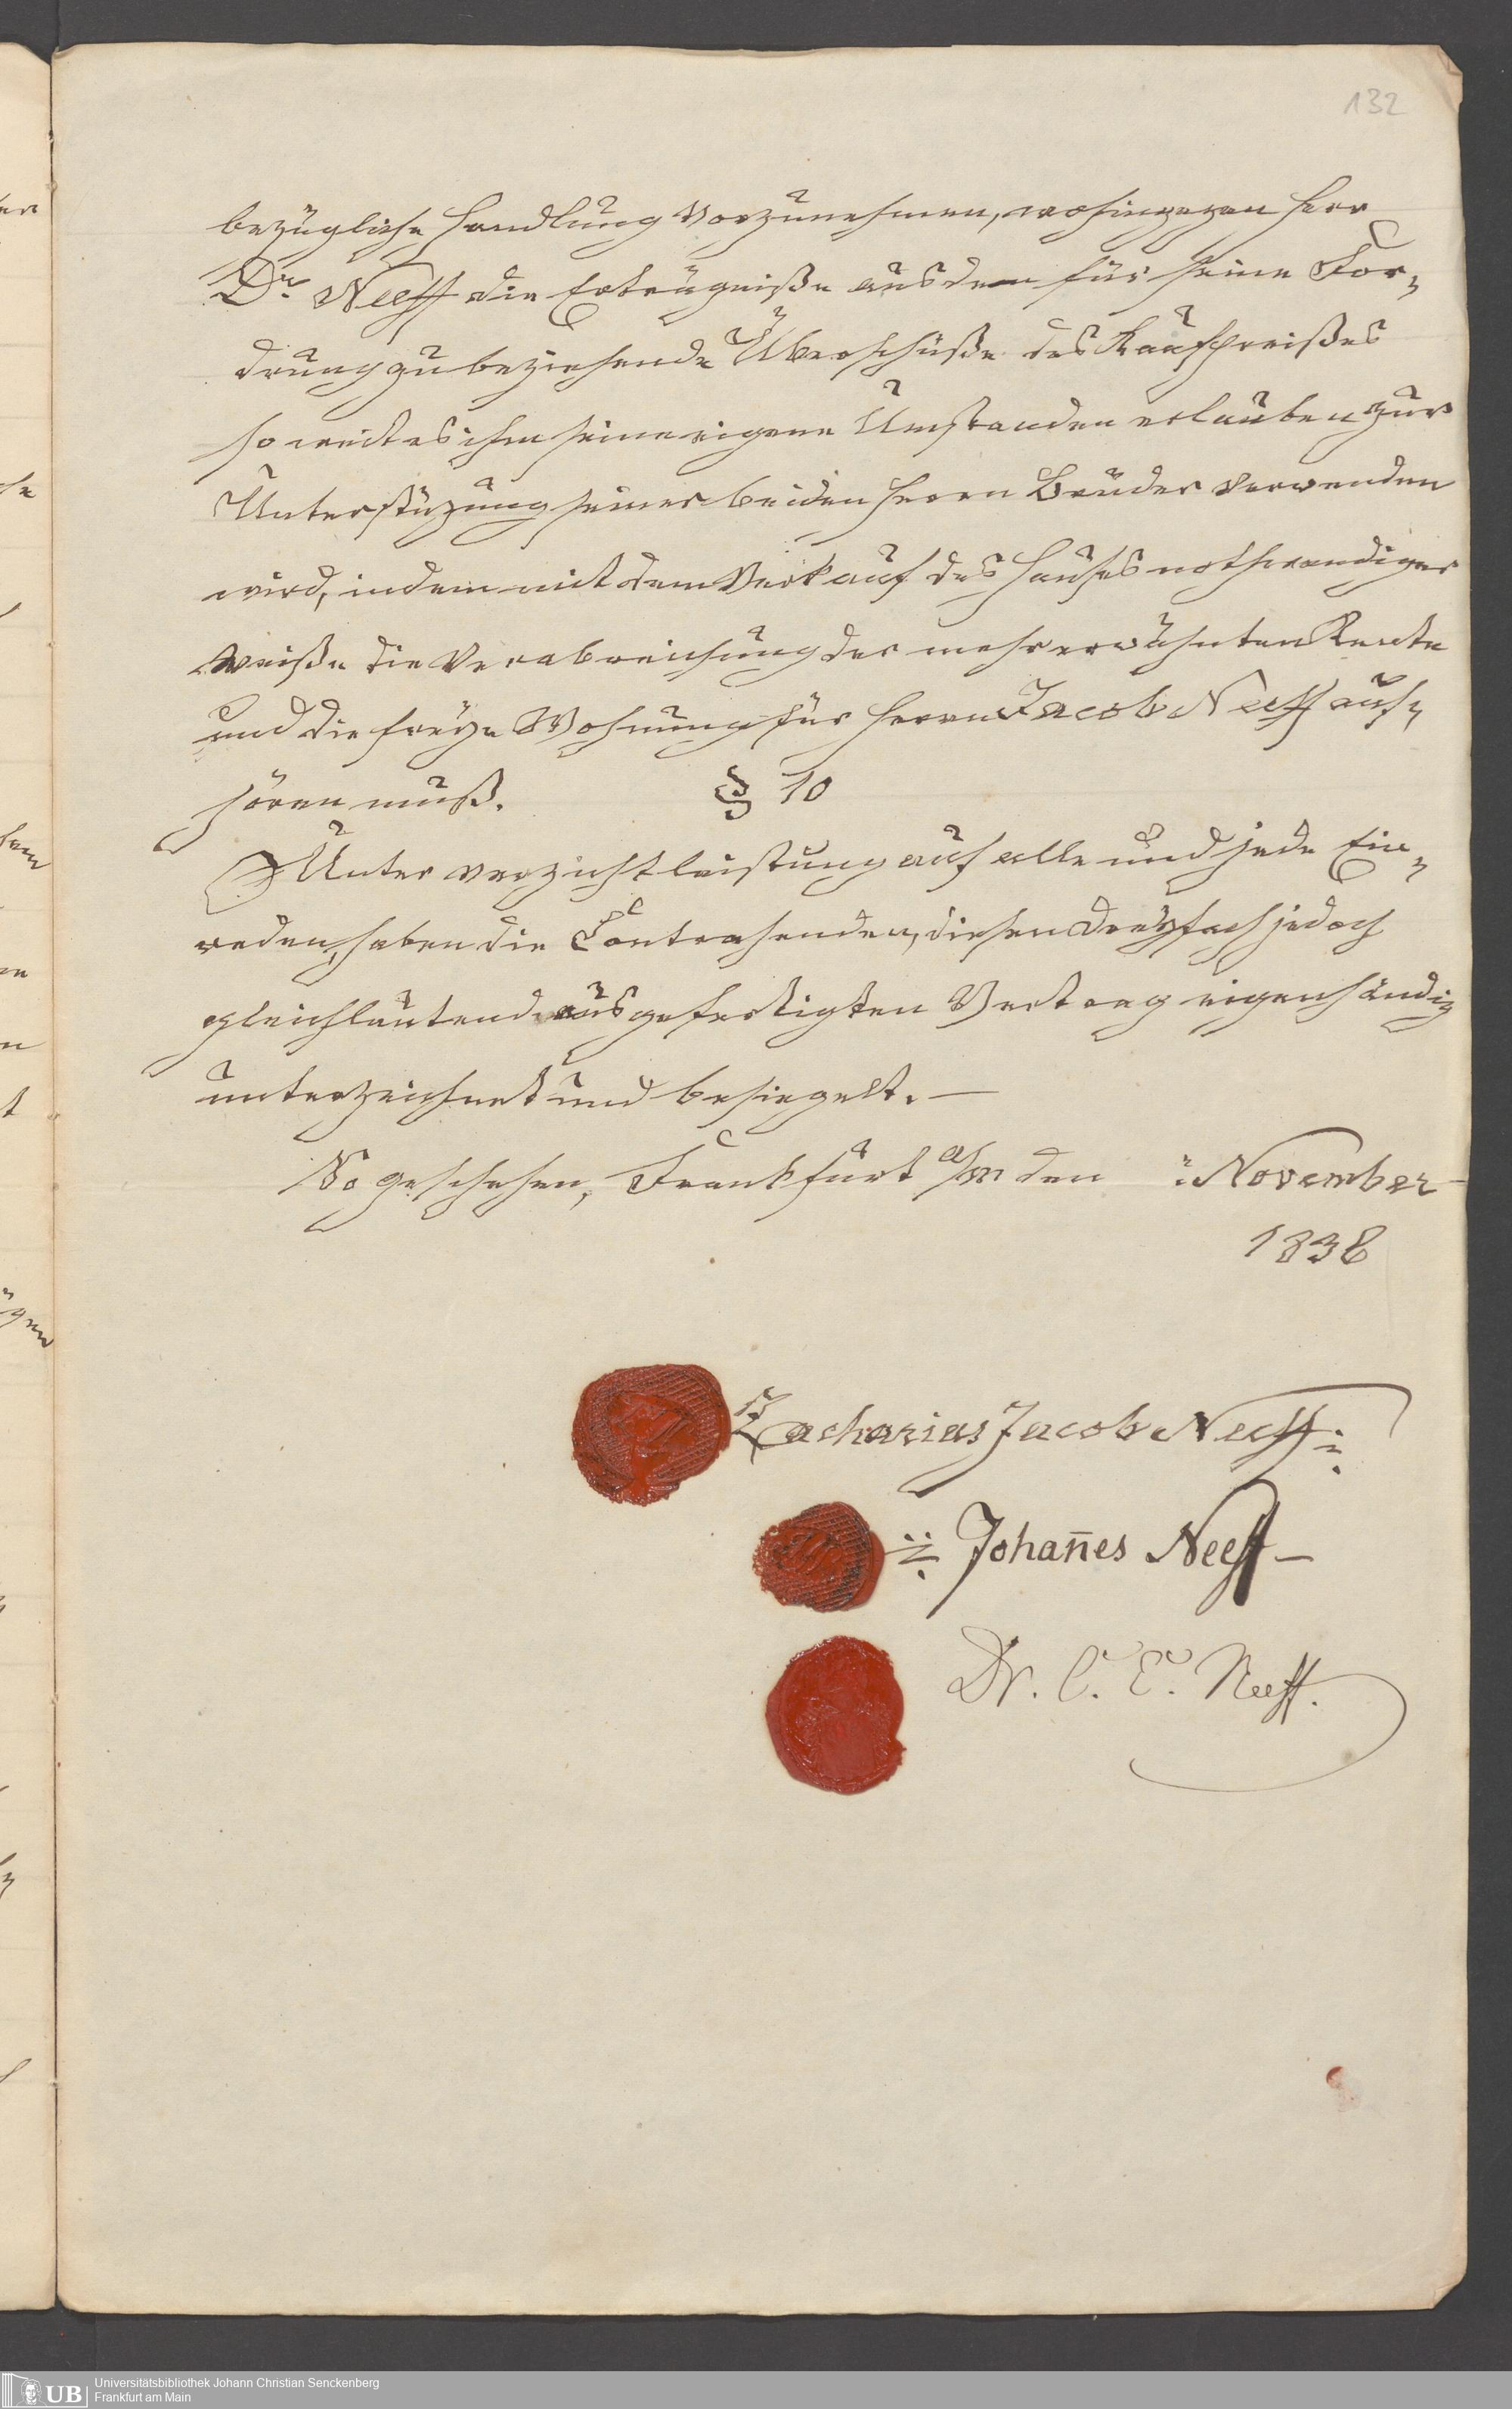 132
bezügliche Handlung vorzunehmen, wohingegen Herr
Dr. Neeff die Erträgniße aus dem für seine For-
drung zu beziehende Überschüße des Kaufpreißes
so weit es ihm seine eigene Umstanden erlauben zur
Unterstüzung seiner beiden Herrn Brüder verwenden
wird, indem mit dem Verkauf des Hauses nothwendiger
weiße die Verabreichung der mehr erwähnten Rente
und die freye Wohnung für Herrn Jacob Neeff auf-
hören muß.
§ 10
Unter verzichtleistung auf alle und jede Ein-
reden, haben die Contrahenden, diesen dreyfach jedoch
gleichlautend ausgefertigten Vertrag eigenhändig
unterzeichnet und besiegelt. —
So geschehen, Frankfurt a/m den November
1838
Zacharias Jacob Neeff
Johan̄es Neeff
Dr. C. E. Neeff.
UB
Universitätsbibliothek Johann Christian Senckenberg
Frankfurt am Main